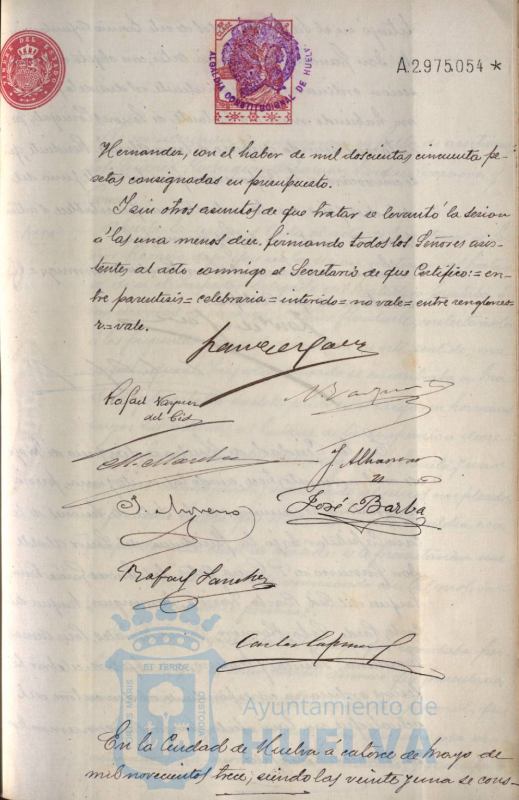 A.2975054 *
TIMBRE DEL ESTADO
Hernandez, con el haber de mil doscientas cincuenta pe-
setas consignadas en presupuesto.
I sin otros asuntos de que tratar se levantó la sesion
á las una menos diez, firmando todos los Señores asis-
tentes al acto conmigo el Secretario de que Certifico:= en-
tre parentisis = celebraria = interido = no vale = entre renglones=
r.= vale.
Rafael Vazquez
del Cid
J. Moreno
José Barba
Rafael Sanchez
PORTUS MARIS
ET TERRÆ
CUSTODIA
Ayuntamiento de
HUELVA
En la Ciudad de Huelva á catorce de Mayo de
mil novecientos trece, siendo las veinte y una se cons-